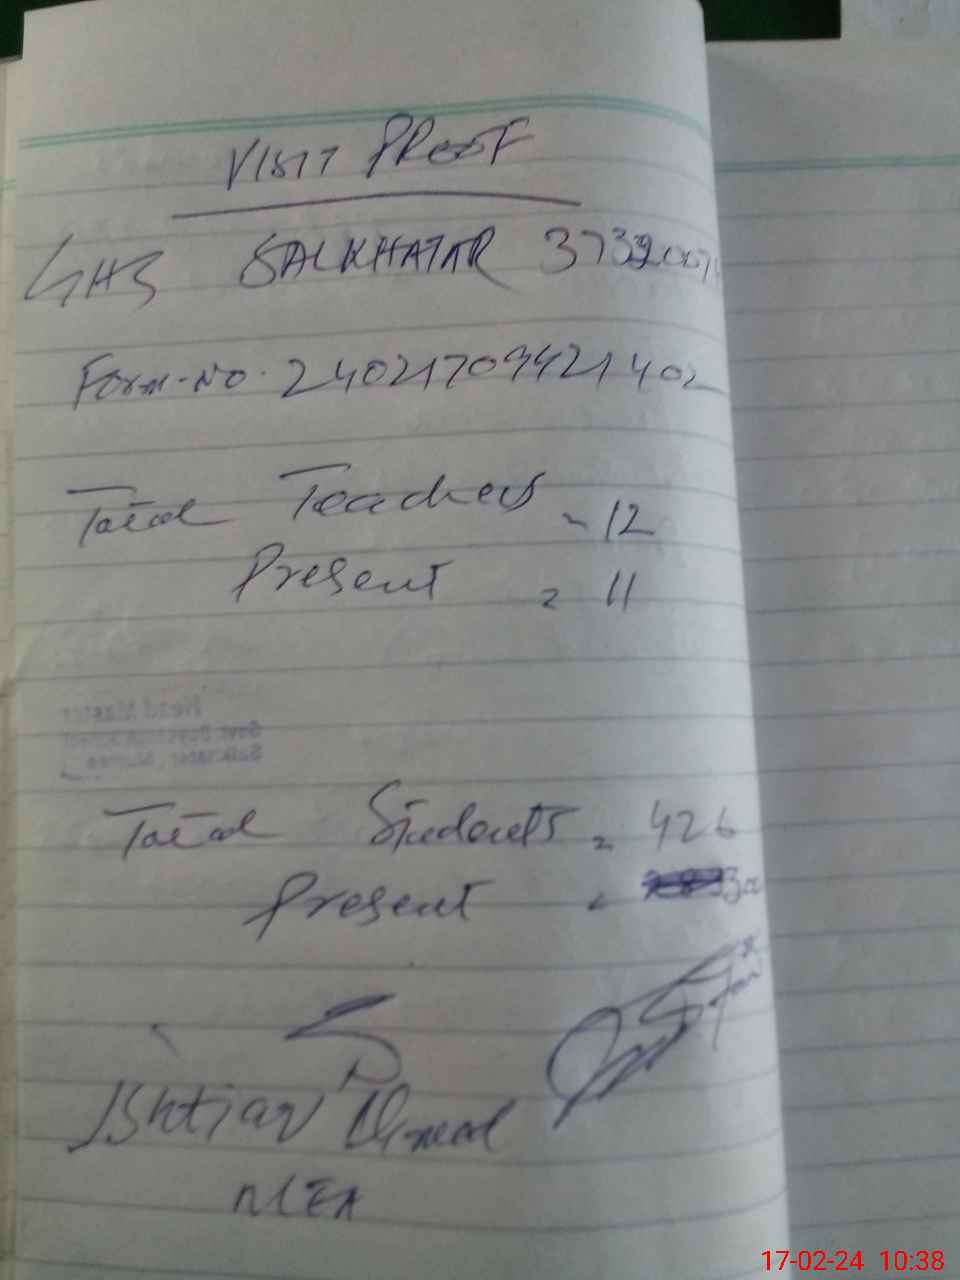 VISIT PROOF
GHS SALKHATAR 3732007
Form-No. 24021709421402
Total Teachers = 12
Present = 11
Head Master
Total Students = 426
Present =
Ishtiaq Ahmed
MEA
17-02-24 10:38